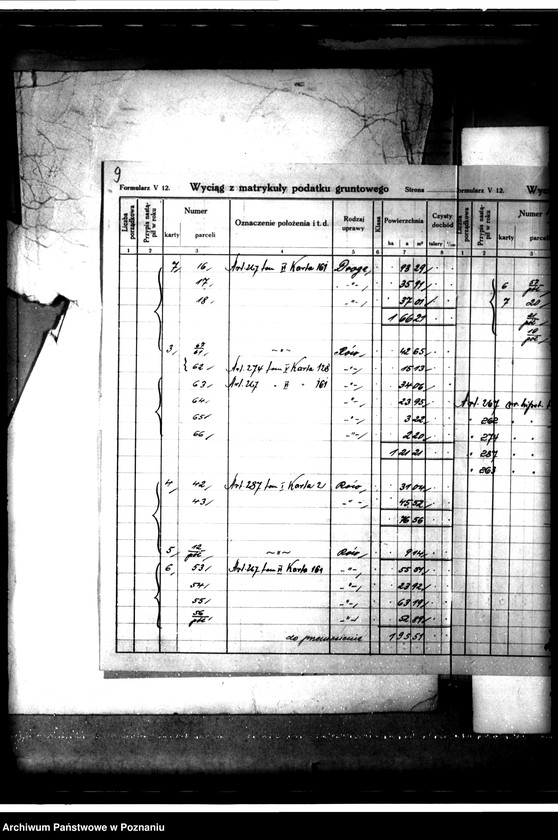 9
Formularz V 12. Wyciąg z matrykuły podatku gruntowego Strona
Liczba porządkowa Przypis nastąpił w roku Numer karty parceli Oznaczenie położenia i t. d. Rodzaj uprawy Klasa Powierzchnia ha a m² Czysty dochód talary
1 2 3 4 5 6 7 8
7 16 Art. 247 tom II Karta 161 Droga 93 29
17 -"- 35 91
18 -"- 37 01
1 66 21
3 Rów 42 65
62 Art 274 tom II Karta 128 -"- 15 13
63 Art 247 " II " 161 -"- 34 06
64 -"- 23 95
65 -"- 3 22
66 -"- 2 20
1 21 21
4 42 Art 287 tom I Karta 2 Rów 31 04
43 -"- 45 52
76 56
5 12/ Rów 9 14
6 53 Art. 247 tom II Karta 161 55 51
54 -"- 23 92
55 -"- 63 19
56/ -"- 52 89
do przeniesienia 1 95 51
Formularz V 12. Wyc
Liczba porządkowa Przypis nastąpił w roku Numer karty parceli
1 2 3
6
7 20
Art. 267
262
274
287
263
Archiwum Państwowe w Poznaniu